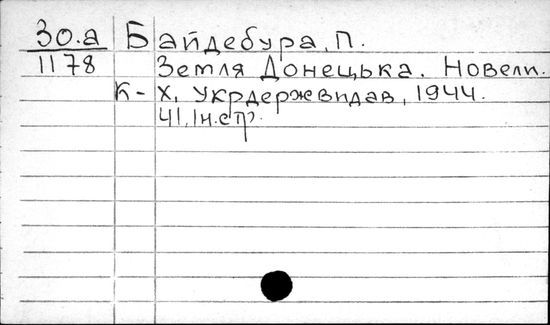 30.а Байдебура, П.
1178 Земля Донецька. Новели.
К-Х, Укрдержвидав, 1944.
41, Ін.стр.